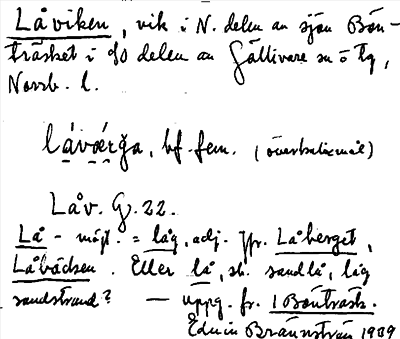 Låviken, vik i N. delen av sjön Bön-
träsket i SO delen av Gällivare sn o tg,
Norrb. l.
bf. fem. (överkalixmål)
Låv. G. 22.
Lå- möjl. = låg, adj. Jfr. Låberget,
Låbäcken. Eller lå, sb. sandlå, låg
sandstrand? — uppg. fr. 1 Bönträsk.
Edvin Brännström 1939